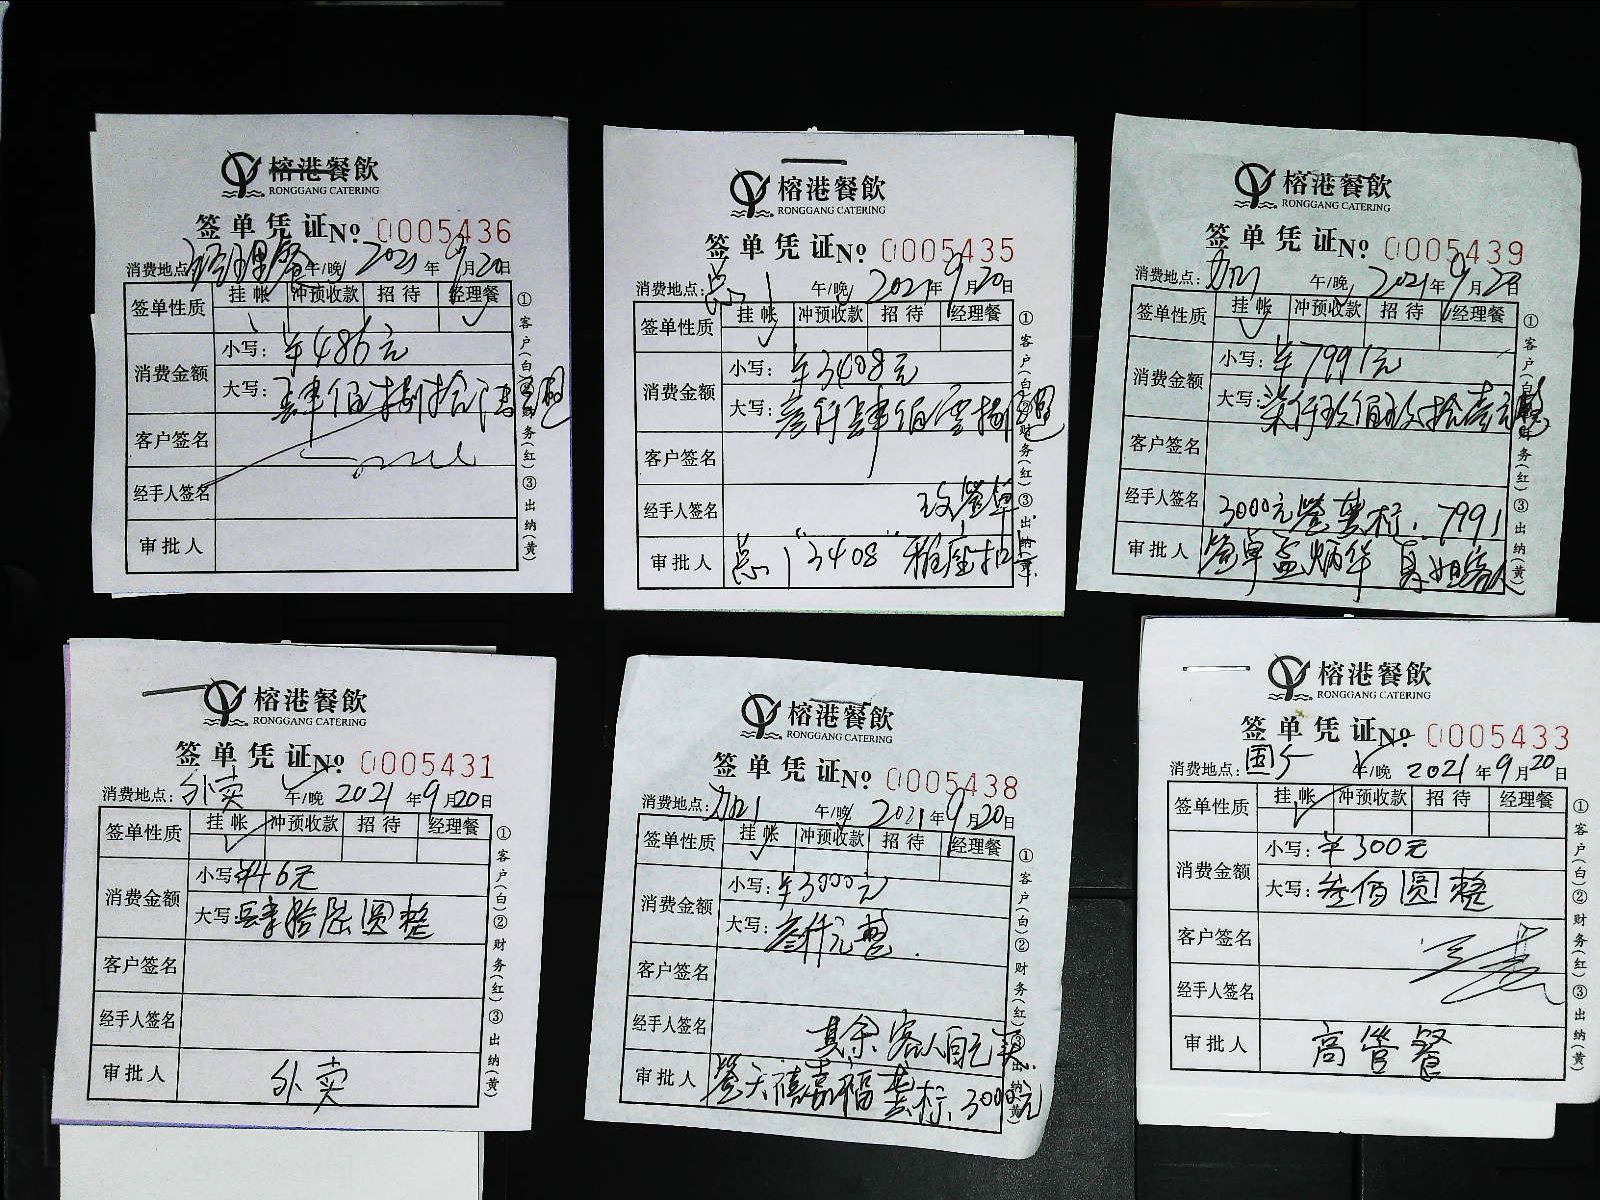 榕港餐飲
RONGGANG CATERING
签单凭证 № 0005436
消费地点: 经理餐 午/晚 2021年9月20日
签单性质 挂帐 冲预收款 招待 经理餐
消费金额 小写: ¥486元
大写: 肆佰捌拾陆圆
客户签名
经手人签名
审批人
①客户(白)②财务(红)③出纳(黄)
榕港餐飲
RONGGANG CATERING
签单凭证 № 0005435
消费地点: 午/晚 2021年9月20日
签单性质 挂帐 冲预收款 招待 经理餐
消费金额 小写: ¥3408元
大写: 叁仟肆佰零捌圆
客户签名
经手人签名 签单
审批人 "3408" 雅座
①客户(白)②财务(红)③出纳(黄)
榕港餐飲
RONGGANG CATERING
签单凭证 № 0005439
消费地点: 午/晚 2021年9月20日
签单性质 挂帐 冲预收款 招待 经理餐
消费金额 小写: ¥7991元
大写: 柒仟玖佰玖拾壹元整
客户签名
经手人签名 3000元 7991
审批人 签单孟炳华
①客户(白)②财务(红)③出纳(黄)
榕港餐飲
RONGGANG CATERING
签单凭证 № 0005431
消费地点: 外卖 午/晚 2021年9月20日
签单性质 挂帐 冲预收款 招待 经理餐
消费金额 小写: ¥46元
大写: 肆拾陆圆整
客户签名
经手人签名
审批人 外卖
①客户(白)②财务(红)③出纳(黄)
榕港餐飲
RONGGANG CATERING
签单凭证 № 0005438
消费地点: 午/晚 2021年9月20日
签单性质 挂帐 冲预收款 招待 经理餐
消费金额 小写: ¥3000元
大写: 叁仟元整.
客户签名
经手人签名 其余客人自己买
审批人 签天禧嘉福 3000元
①客户(白)②财务(红)③出纳(黄)
榕港餐飲
RONGGANG CATERING
签单凭证 № 0005433
消费地点: 国厅 午/晚 2021年9月20日
签单性质 挂帐 冲预收款 招待 经理餐
消费金额 小写: ¥300元
大写: 叁佰圆整
客户签名
经手人签名
审批人 高管餐
①客户(白)②财务(红)③出纳(黄)